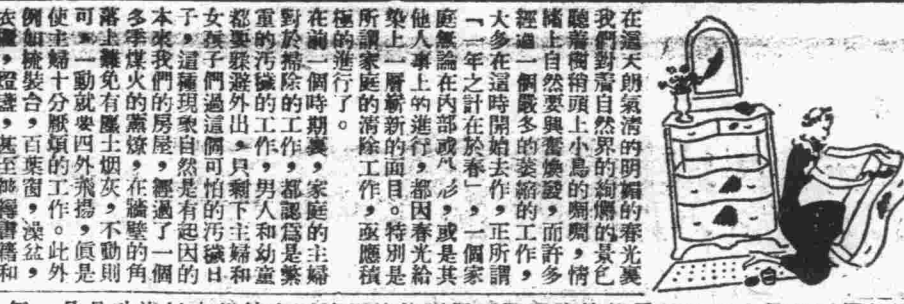 在這天朗氣清的明媚的春光裏
我們對着自然界的絢爛的景色
聽着樹稍頭上小鳥的啁啁，情
緒上自然要興奮煥發，而許多
經過一個嚴冬的萎縮的工作，
大多在這時開始去作，正所謂
「一年之計在於春」，一個家
庭無論在內部或外形，或是其
他人事上的進行，都因春光給
染上一層嶄新的面目。特別是
所謂家庭的清除工作，亟應積
極的進行了。
在前一個時期裏，家庭的主婦
對於掃除的工作，都認爲是繁
重的污穢的工作，男人和幼童
都要躲避外出，只剩下主婦和
女孩子們過這個可怕的污穢日
子，這種現象自然是有起因的
本來我們的房屋，經過了一個
多季煤火的薰燎，在牆壁的角
落上難免有塵土烟灰，不動則
可，一動就要四外飛揚，眞是
使主婦十分厭煩的工作。此外
例如梳裝台，百葉窗，澡盆，
衣櫃，燈盞，甚至無縫書籍和